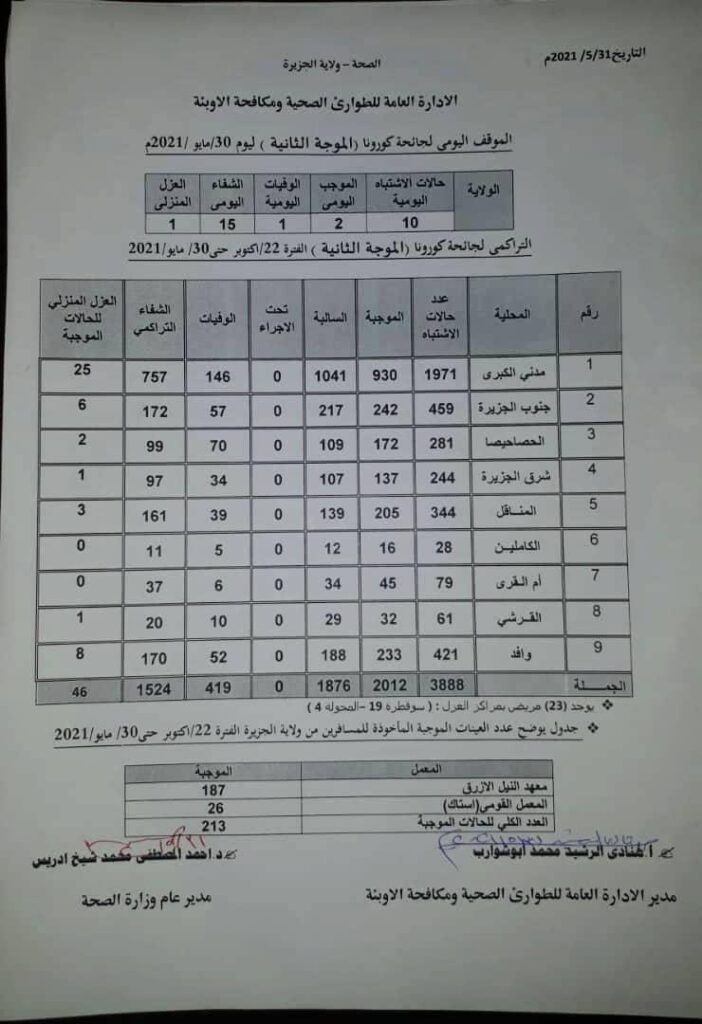 التاريخ2021 /5/31م
الصحة – ولاية الجزيرة
الادارة العامة للطوارئ الصحية ومكافحة الاوبئة
الموقف اليومى لجائحة كورونا (الموجة الثانية ) ليوم 30/مايو /2021م
الولاية حالات الاشتباه اليومية الموجب اليومى الوفيات اليومية الشفاء اليومى العزل المنزلى
10 2 1 15 1
التراكمي لجائحة كورونا (الموجة الثانية ) الفترة 22/اكتوبر حتى30/ مايو/2021
رقم المحلية عدد حالات الاشتباه الموجبة السالبة تحت الاجراء الوفيات الشفاء التراكمي العزل المنزلي للحالات الموجبة
1 مدني الكبرى 1971 930 1041 0 146 757 25
2 جنوب الجزيرة 459 242 217 0 57 172 6
3 الحصاحيصا 281 172 109 0 70 99 2
4 شرق الجزيرة 244 137 107 0 34 97 1
5 المناقل 344 205 139 0 39 161 3
6 الكاملين 28 16 12 0 5 11 0
7 أم القرى 79 45 34 0 6 37 0
8 القرشي 61 32 29 0 10 20 1
9 وافد 421 233 188 0 52 170 8
الجملة 3888 2012 1876 0 419 1524 46
❖ يوجد (23) مريض بمراكز العزل : ( سوقطرة 19 –المحولة 4 )
❖ جدول يوضح عدد العينات الموجبة المأخوذة للمسافرين من ولاية الجزيرة الفترة 22/اكتوبر حتى30/ مايو/2021
المعمل الموجبة
معهد النيل الازرق 187
المعمل القومى(استاك) 26
العدد الكلي للحالات الموجبة 213
أ.هنادى الرشيد محمد ابوشوارب
د.احمد المصطفى محمد شيخ ادريس
مدير الادارة العامة للطوارئ الصحية ومكافحة الاوبئة
مدير عام وزارة الصحة